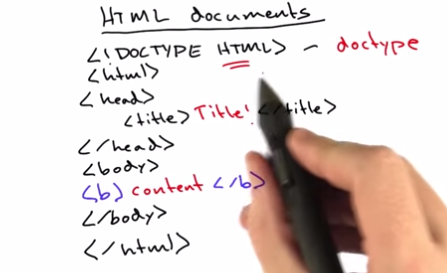 HTML documents
<!DOCTYPE HTML> - doctype
<html>
<head>
<title> Title! </title>
</head>
<body>
<b> content </b>
</body>
</html>